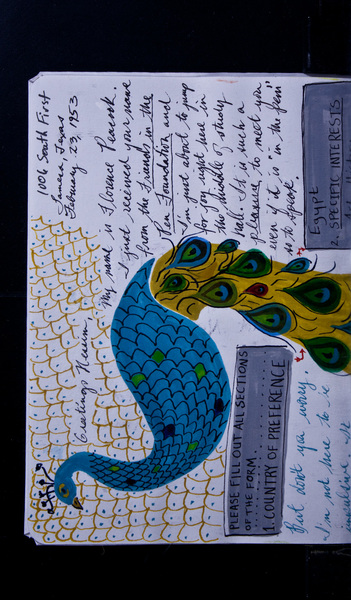 1006 South First
Lamesa, Texas
February 23, 1953
Greetings
My name is Florence Peacock.
I just received your name
from the Friends in the
Pen Foundation and
I'm just about to jump
for joy right here in
the middle of study
hall. It is such a
pleasure to meet you
even if it is "in the pen"
so to speak.
PLEASE FILL OUT ALL SECTIONS
OF THE FORM.
1. COUNTRY OF PREFERENCE
Egypt
2. SPECIFIC INTERESTS
But don't you worry
I'm not here to be